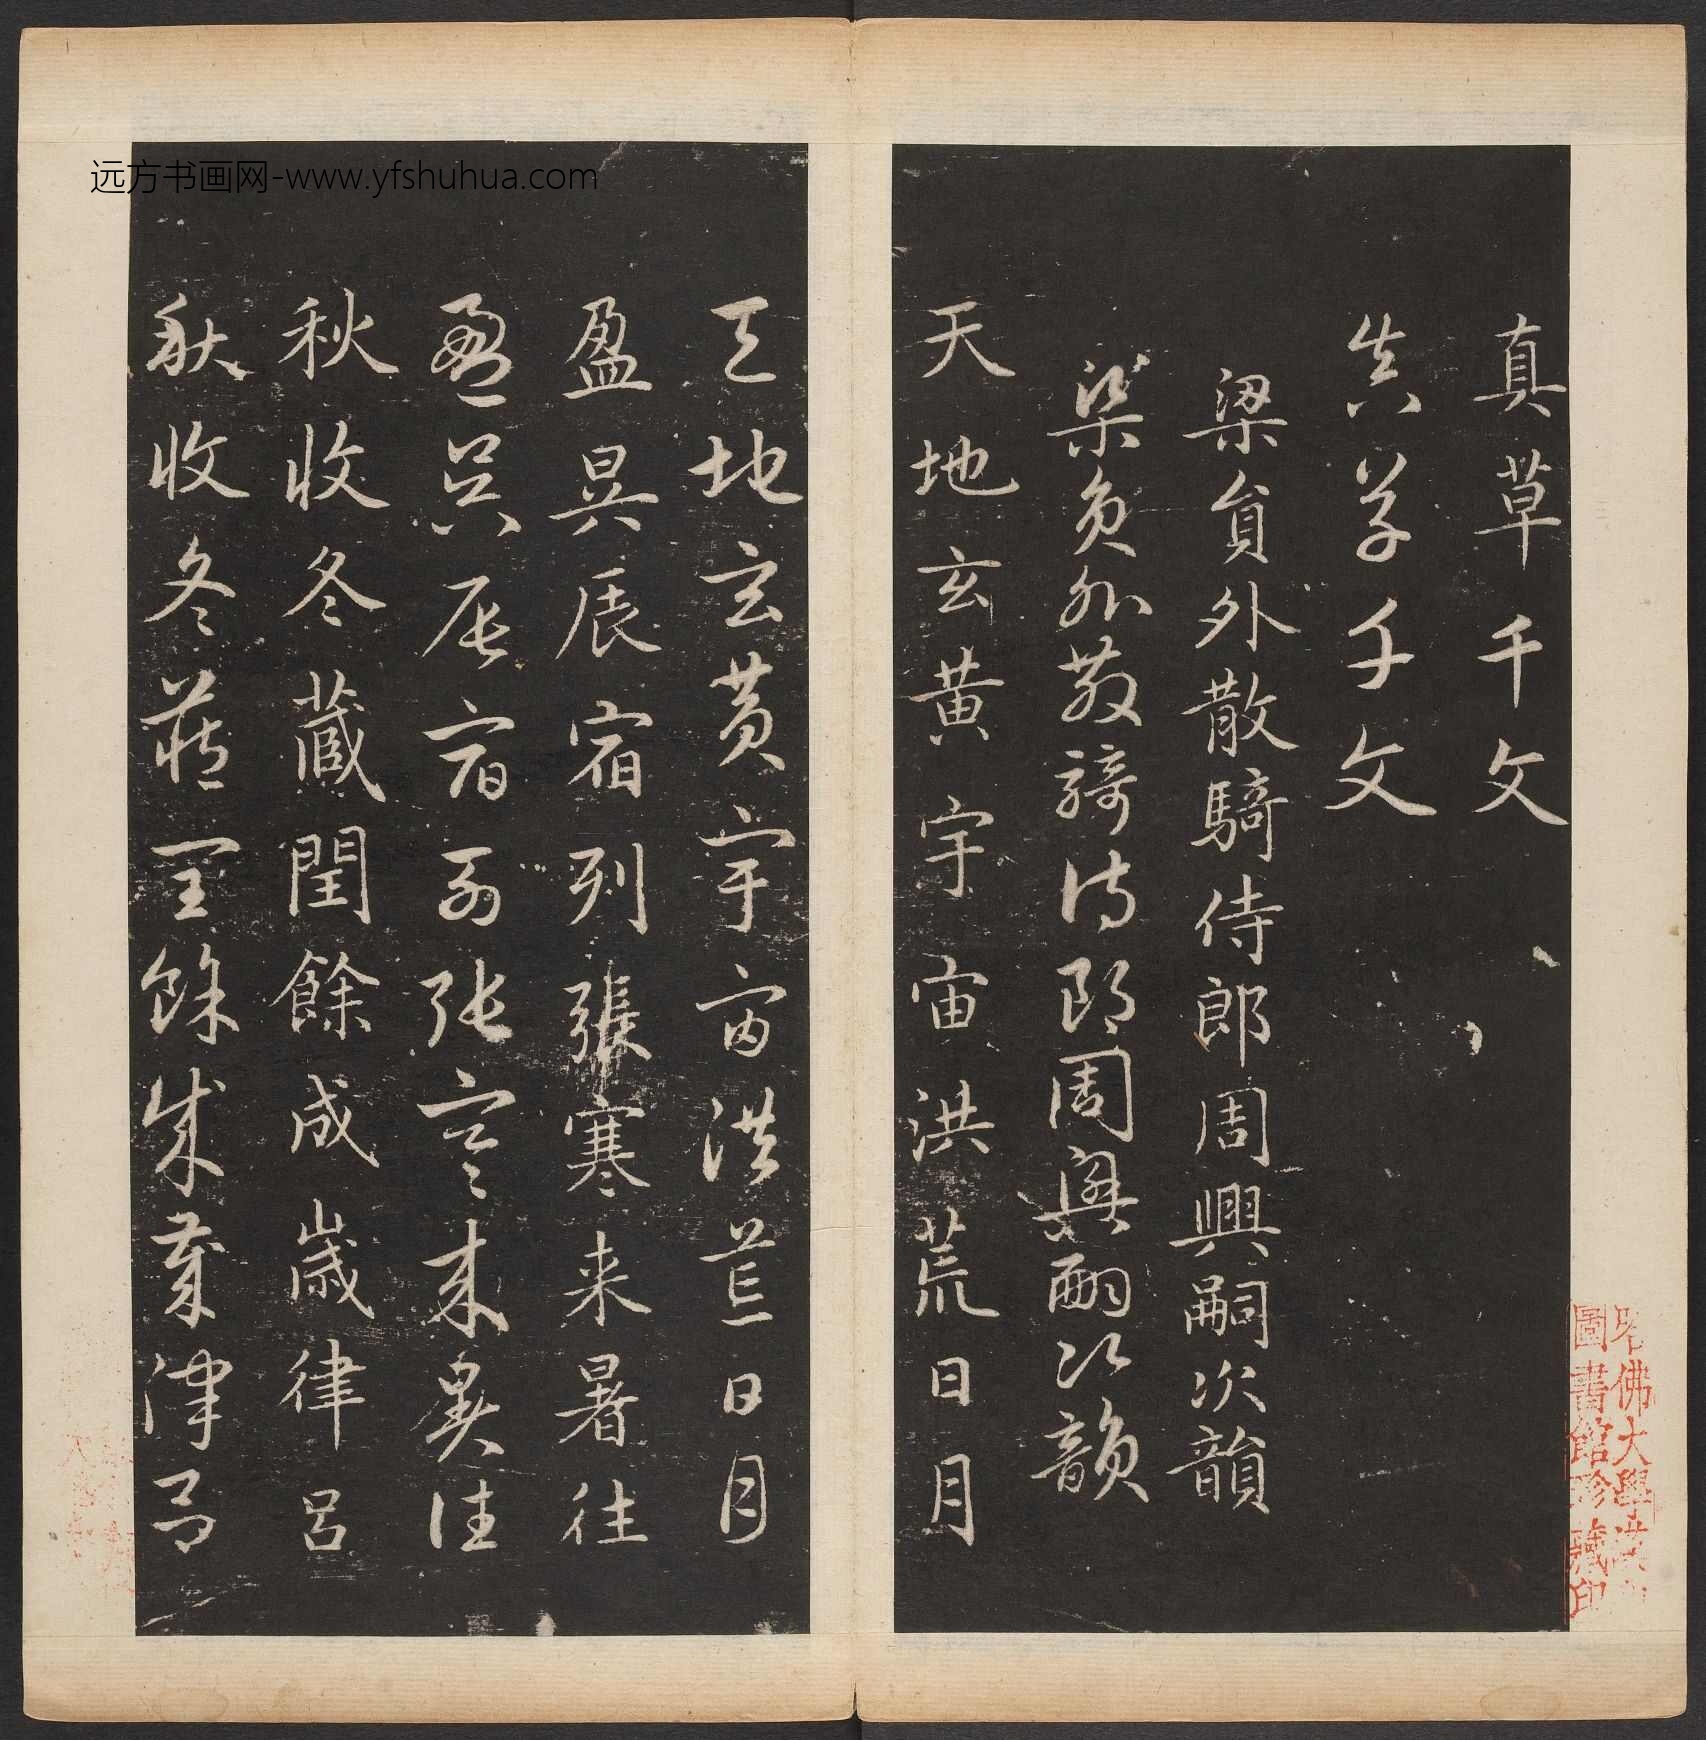 远方书画网-www.yfshuhua.com
真草千文
真草千文
梁員外散騎侍郎周興嗣次韻
梁員外散騎侍郎周興嗣次韻
天地玄黄宇宙洪荒日月
天地玄黄宇宙洪荒日月
盈昃辰宿列張寒来暑往
盈昃辰宿列張寒来暑往
秋收冬藏閏餘成歲律呂
秋收冬藏閏餘成歲律呂
哈佛大學漢和
圖書館珍藏印